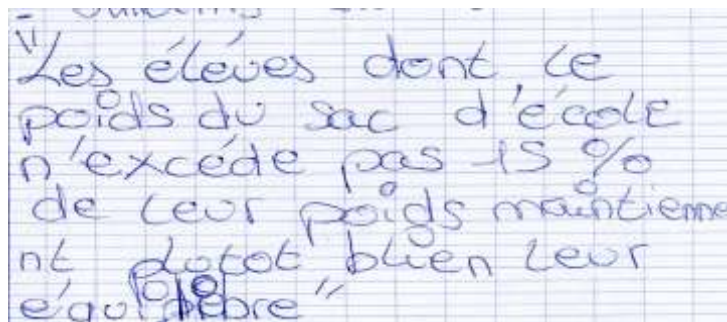 "Les éléves dont le
poids du sac d'école
n'excéde pas 15 %
de leur poids maintienne
nt plutot bien leur
équilibre"